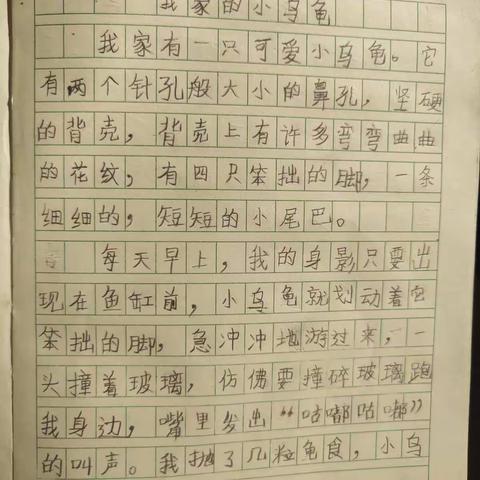 我家的小乌龟
我家有一只可爱小乌龟。它
有两个针孔般大小的鼻孔，坚硬
的背壳，背壳上有许多弯弯曲曲
的花纹，有四只笨拙的脚，一条
细细的，短短的小尾巴。
每天早上，我的身影只要出
现在鱼缸前，小乌龟就划动着它
笨拙的脚，急冲冲地游过来，一
头撞着玻璃，仿佛要撞碎玻璃跑
我身边，嘴里发出“咕嘟咕嘟”
的叫声。我抛了几粒龟食，小乌